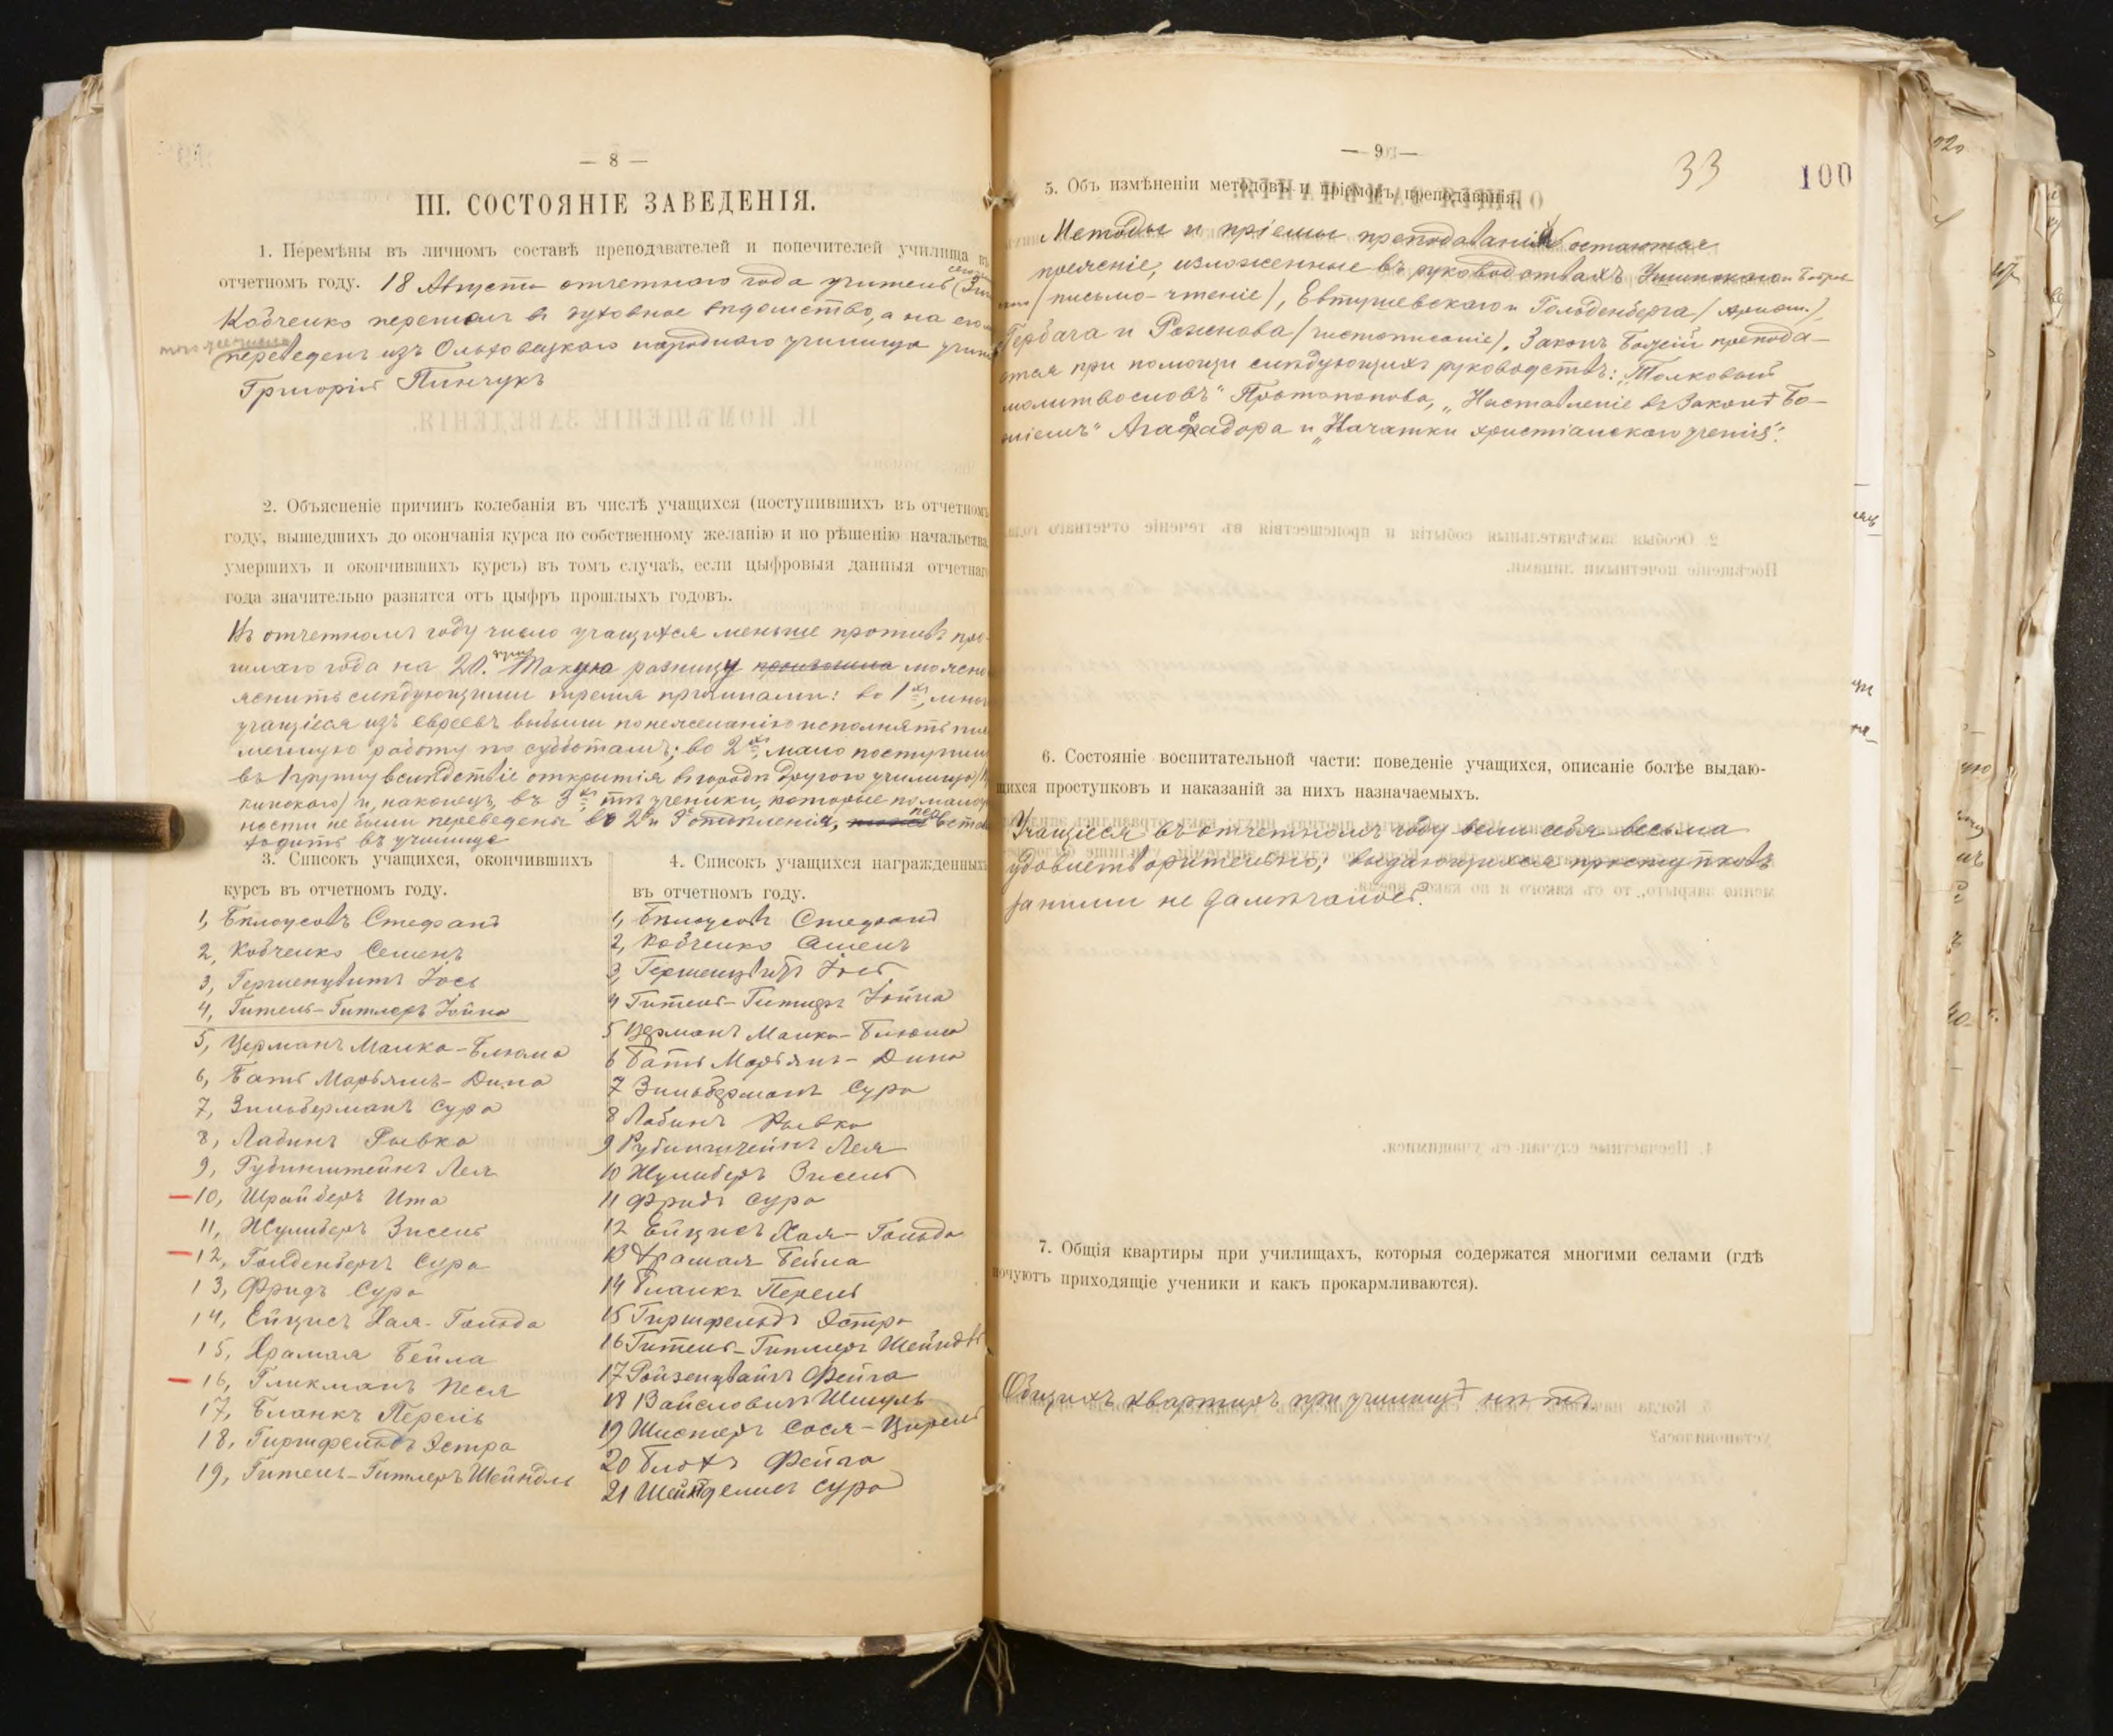 — 8 —
III. СОСТОЯНІЕ ЗАВЕДЕНІЯ.
1. Перемѣны въ личномъ составѣ преподавателей и попечителей училища въ
отчетномъ году. 18 Августа отчетнаго года учитель
Кобченко перешелъ в духовное вѣдомство, а на его
переведенъ изъ Ольховецкаго народнаго училища
Григорій Пинчукъ
2. Объясненіе причинъ колебанія въ числѣ учащихся (поступившихъ въ отчетномъ
году, вышедшихъ до окончанія курса по собственному желанію и по рѣшенію начальства,
умершихъ и окончившихъ курсъ) въ томъ случаѣ, если цыфровыя данныя отчетнаго
года значительно разнятся отъ цыфръ прошлыхъ годовъ.
Въ отчетномъ году число учащихся меньше противъ про-
шлаго года на 20. Такую разницу произошла можно
яснить слѣдующими причинами: во 1хъ,
учащіеся изъ евреевъ выбыли по нежеланію исполнять пись
менную работу по субботамъ; во 2хъ, мало поступило
въ 1 группу вслѣдствіе открытія въ городѣ другого училища
и, наконецъ, въ 3хъ тѣ ученики, которые по малоу
ности не были переведены во 2е и 3е отдѣленія,
ходить въ училище
3. Списокъ учащихся, окончившихъ
курсъ въ отчетномъ году.
1, Бѣлоусовъ Стефанъ
2, Кобченко Семенъ
3, Гершенцвитъ Іось
4, Гитель-Гитлеръ Іойна
5, Церманъ Малка-Блюма
6, Батъ Марьямъ-Дина
7, Зильберманъ Сура
8, Лабинъ Рывка
9, Рубинштейнъ Лея
10, Шрайберъ Ита
11, Жулиберъ Зисель
12, Голденбергъ Сура
13, Фридъ Сура
14, Ейцисъ Хая-Гольда
15, Храмая Бейла
16, Гликманъ Песя
17, Бланкъ Перель
18, Гиршфельдъ Эстра
19, Гитель-Гитлеръ Шейндль
4. Списокъ учащихся награжденныхъ
въ отчетномъ году.
1, Бѣлоусовъ Стефанъ
2, Кобченко Семенъ
3, Гершенцвитъ Іось
4 Гитель-Гитлеръ Іойна
5 Церманъ Малка-Блюма
6 Батъ Марьямъ-Дина
7 Зильберманъ Сура
8 Лабинъ Рывка
9 Рубинштейнъ Лея
10 Жулиберъ Зисель
11 Фридъ Сура
12 Ейцисъ Хая-Гольда
13 Храмая Бейла
14 Бланкъ Перель
15 Гиршфельдъ Эстра
16 Гитель-Гитлеръ Шейндль
17 Ройзенцвайгъ Фейга
18 Вайсловичъ Шмуль
19 Шистеръ Сося-Цирель
20 Блохъ Фейга
21 Шейнделисъ Сура
— 9 —
33
100
5. Объ измѣненіи методовъ и пріемовъ преподаванія.
Методы и пріемы преподаванія остаются
прежніе, изложенные въ руководствахъ Ушинскаго и
/письмо-чтеніе/, Евтушевскаго и Гольденберга /ариѳм./,
Гербача и Роженова /чистописаніе/. Законъ Божій препода-
ется при помощи слѣдующихъ руководствъ: „Толковый
молитвословъ" Протопопова, „Наставленіе въ Законѣ Бо-
жіемъ" Агаѳадора и „Начатки христіанскаго ученія".
6. Состояніе воспитательной части: поведеніе учащихся, описаніе болѣе выдаю-
щихся проступковъ и наказаній за нихъ назначаемыхъ.
Учащіеся въ отчетномъ году вели себя весьма
удовлетворительно; выдающихся проступковъ
за ними не замѣчалось.
7. Общія квартиры при училищахъ, которыя содержатся многими селами (гдѣ
ночуютъ приходящіе ученики и какъ прокармливаются).
Общихъ квартиръ при училищѣ нѣтъ